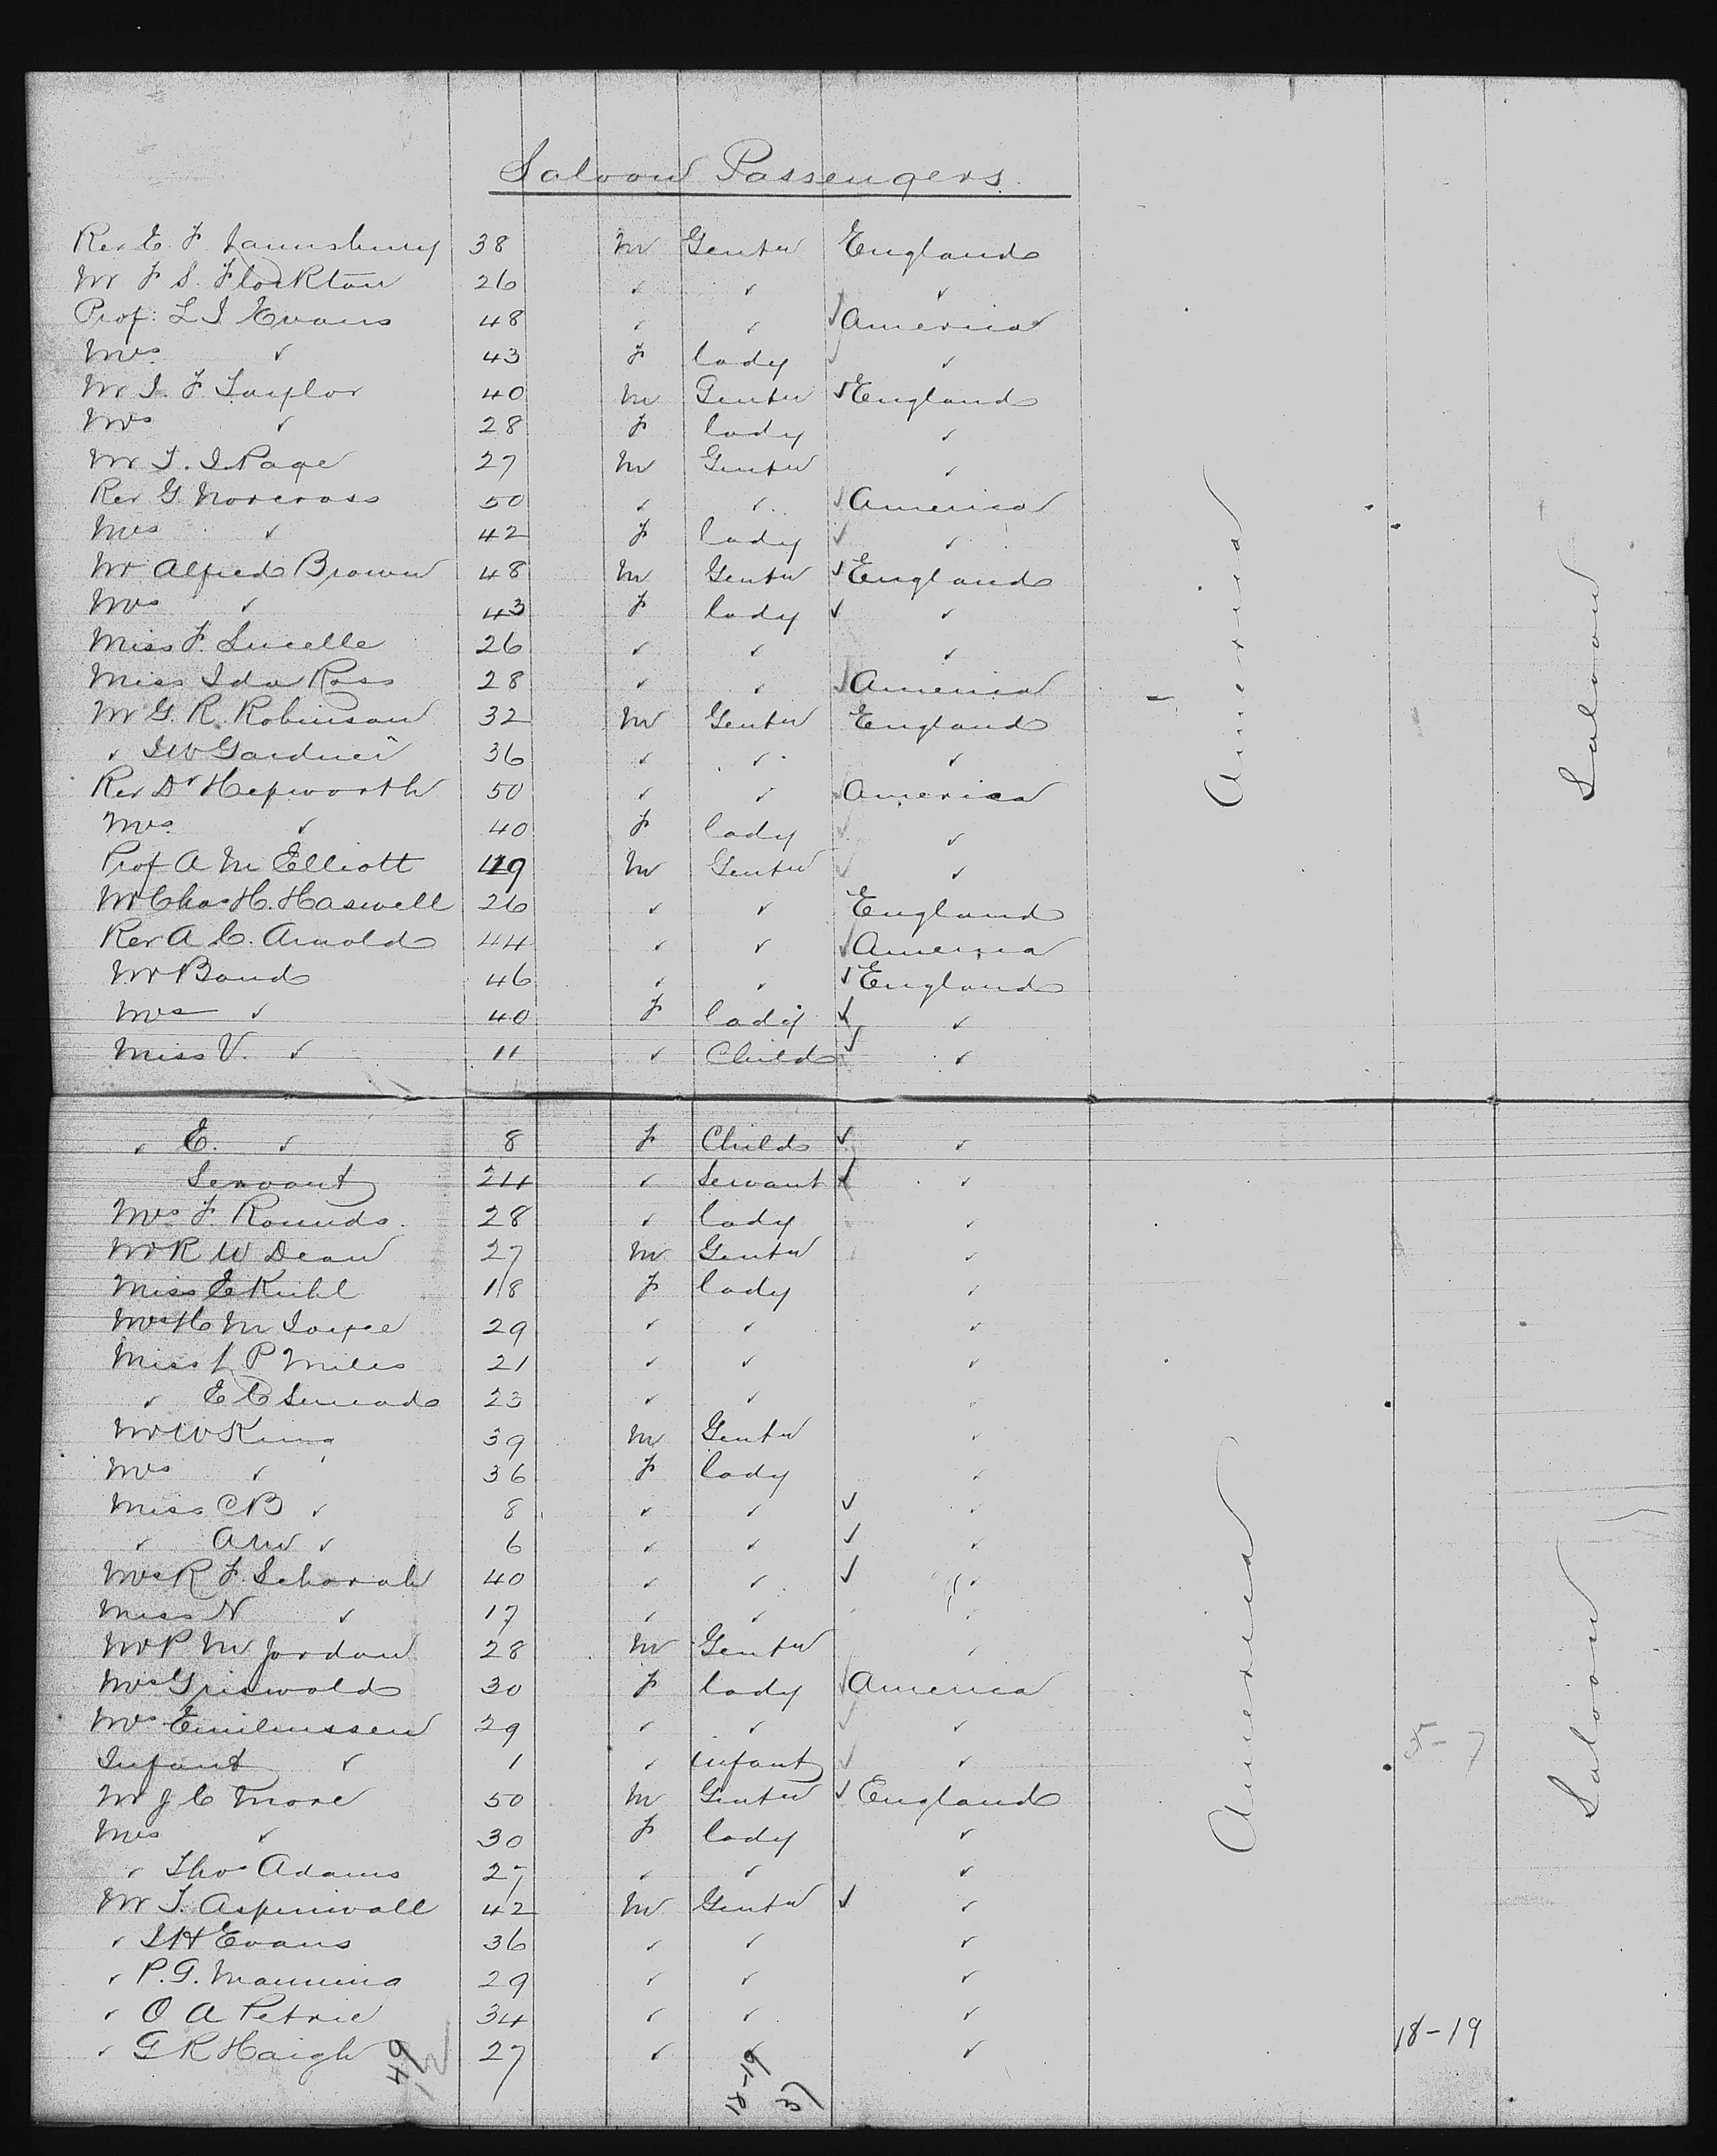 Saloon Passengers.
Rev E. F. Launsbury 38 M Gentn England
Mr F. S. Flockton 26 " " "
Prof. L I Evans 48 " " America
Mrs " 43 F lady "
Mr I. F. Taylor 40 M Gentn England
Mrs " 28 F lady "
Mr T. I. Page 27 M Gentn "
Rev G Norcross 50 " " America
Mrs " 42 F lady "
Mr Alfred Brown 48 M Gentn England
Mrs " 43 F lady "
Miss F. Lucelle 26 " " "
Miss Ida Ross 28 " " America
Mr G. R. Robinson 32 M Gentn England
" I W Gardner 36 " " "
Rev Dr Hepworth 50 " " America
Mrs " 40 F lady "
Prof A M Elliott 49 M Gentn "
Mr Chas H. Haswell 26 " " England
Rev A C. Arnold 44 " " America
Mr Band 46 " " England
Mrs " 40 F lady "
Miss V. " 11 " Child "
" E. " 8 F Child "
Servant 24 " Servant "
Mrs F. Rounds 28 " lady "
Mr R W Dean 27 M Gentn "
Miss E Kuhl 18 F lady "
Mrs H M Joyce 29 " " "
Miss L P Miles 21 " " "
" E C 23 " " "
Mr W King 39 M Gentn "
Mrs " 36 F lady "
Miss C B " 8 " " "
" A M " 6 " " "
Mrs R F. Schorah 40 " " "
Miss N " 17 " " "
Mr P M Jordan 28 M Gentn "
Mrs Griswold 30 F lady America
Mrs 29 " " "
Infant " 1 " infant "
Mr J C More 50 M Gentn England
Mrs " 30 F lady "
" Thos Adams 27 " " "
Mr T. Aspinwall 42 M Gentn "
" I H Evans 36 " " "
" P. G. Manning 29 " " "
" O A Petrie 34 " " "
" G R Haigh 27 " " "
America
Saloon
America
Saloon
18-19
49
12
18-19
37